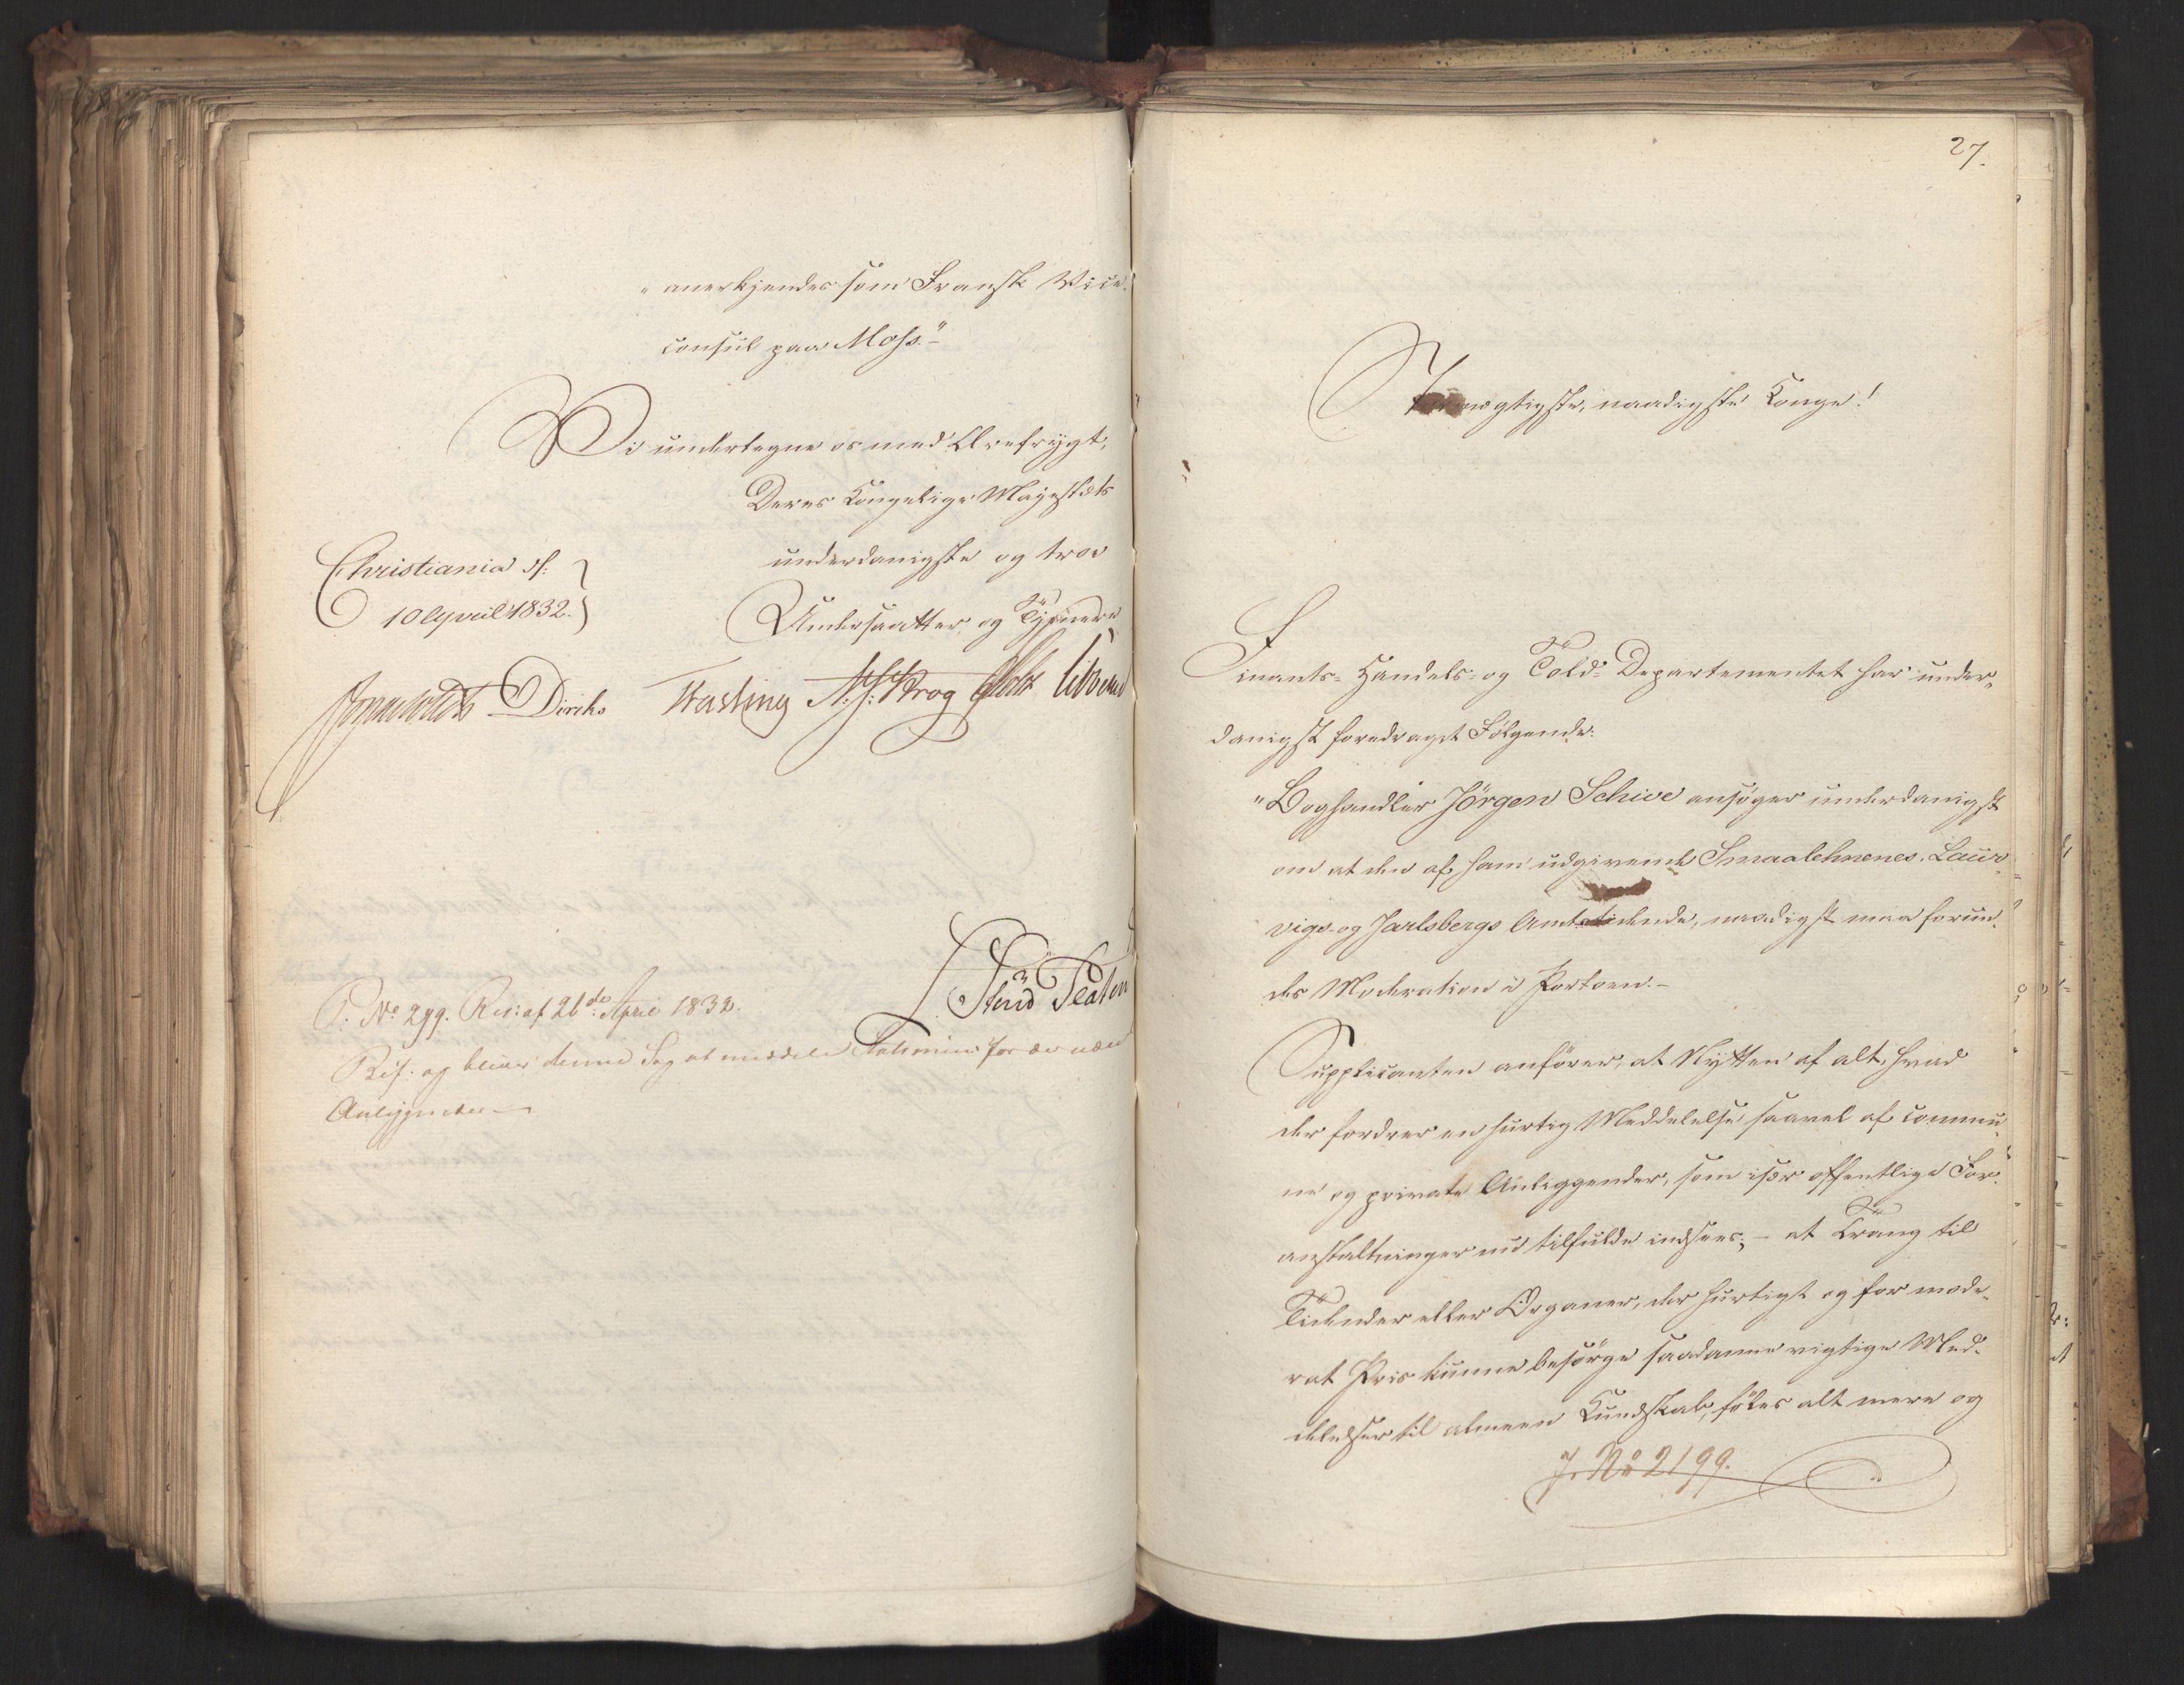 "anerkjendes som Fransk Vice-
consul paa Moss."-
Vi undertegne os med Ærefrygt,
Deres Kongelige Majestæts
underdanigste og troe
Undersaatter og Tjenere
Christiania d:
10 April 1832.
Diriks Fasting Krog
P. No 299. Res: af 26de April 1832.
Bif. og bliver denne Sag at meddele
Anliggender
27.
Stormægtigste, naadigste Konge!
Finants- Handels- og Told-Departementet har under-
danigst foredraget Følgende:
"Boghandler Jörgen Schive ansøger underdanigst
om at den af ham udgivende Smaalehnenes, Laur-
vigs- og Jarlsbergs Amtstidende, naadigst maa forun-
des Moderation i Portoen.-
Supplicanten anfører, at Nytten af alt, hvad
der fordrer en hurtig Meddelelse saavel af commu-
ne og private Anliggender, som især offentlige For-
anstaltninger nu tilfulde indsees; - at Trang til
Tidender eller Organer, der hurtigt og for mode-
rat Priis kunne besørge saadanne vigtige Med-
delelser til almeen Kundskab, føles alt mere og
J. No 2199.